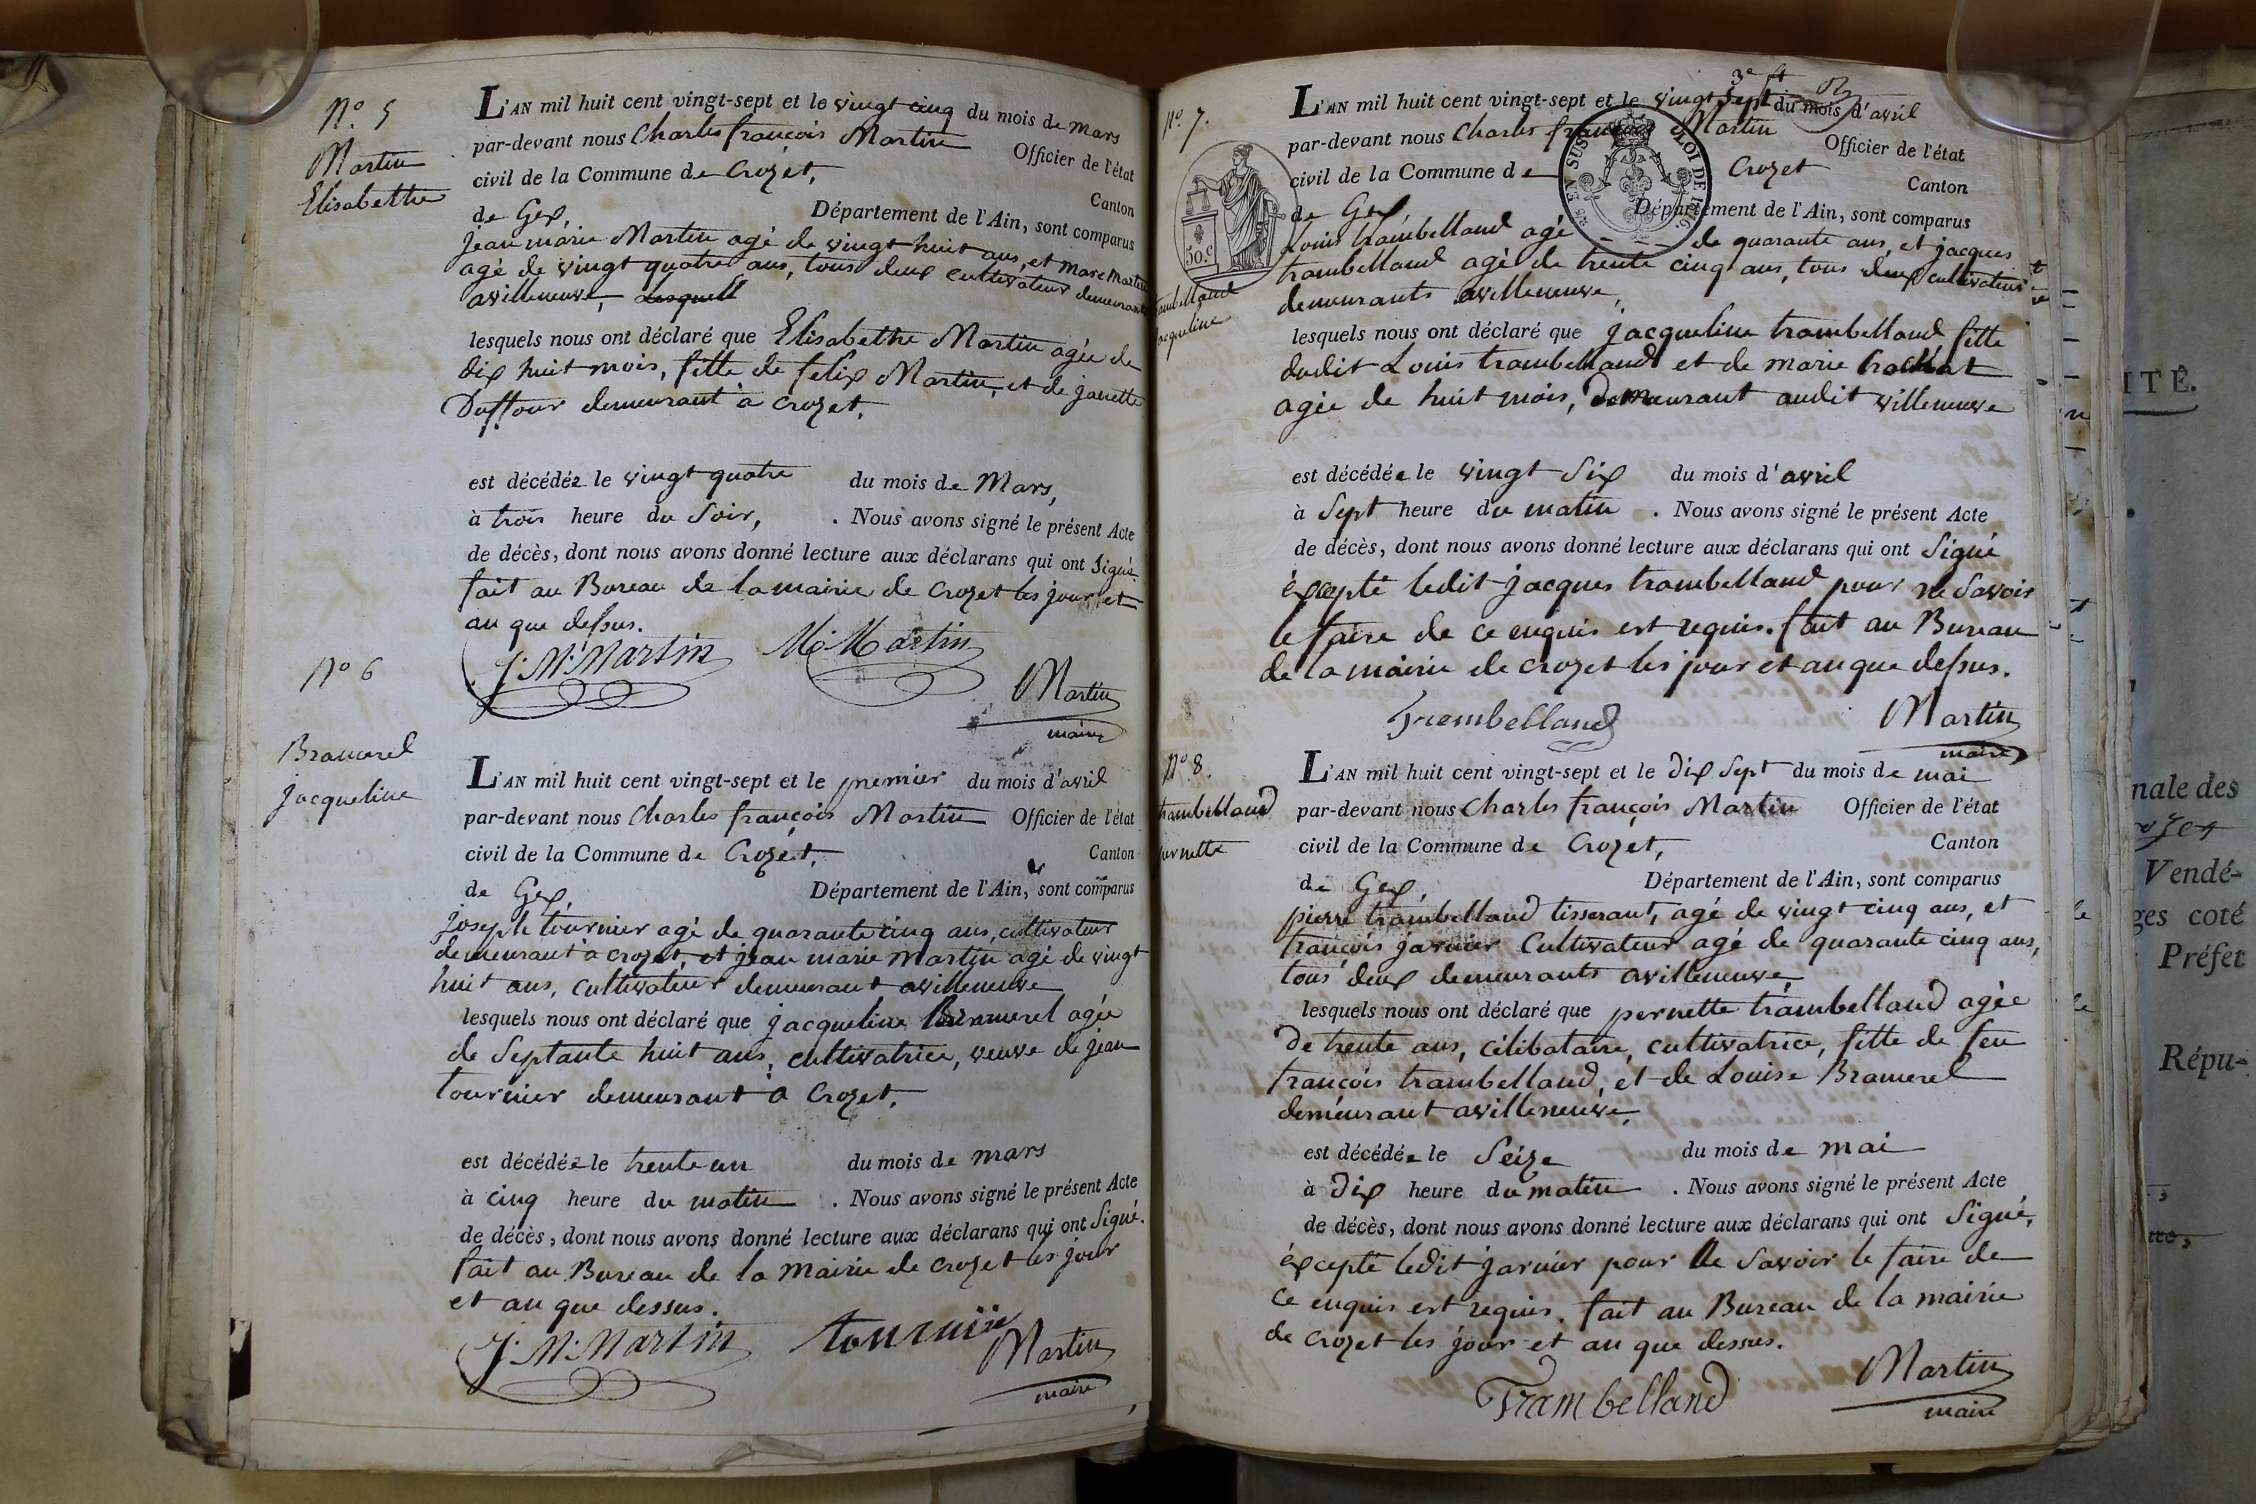 N.° 5
Martin
Elisabethe
L'AN mil huit cent vingt-sept et le vingt cinq du mois de Mars
par-devant nous Charles françois Martin Officier de l'état
civil de la Commune de Crozet, Canton
de Gex, Département de l'Ain, sont comparus
jean marie Martin agé de vingt huit ans, et Marc Martin
agé de vingt quatre ans, tous deux cultivateur demeurant
avilleneuve,
lesquels nous ont déclaré que Elisabethe Martin agée de
dix huit mois, fille de felix Martin, et de janette
Duffour demeurant à crozet.
est décédée le vingt quatre du mois de Mars,
à trois heure du Soir, . Nous avons signé le présent Acte
de décès, dont nous avons donné lecture aux déclarans qui ont Signé.
fait au Bureau de la mairie de Crozet les jour et
an que dessus.
J. M. Martin M. Martin
Martin
maire
N° 6
Bramerel
jacqueline
L'AN mil huit cent vingt-sept et le premier du mois d'avril
par-devant nous Charles françois Martin Officier de l'état
civil de la Commune de Crozet, Canton
de Gex, Département de l'Ain, sont comparus
joseph tournier agé de quarante cinq ans, cultivateur
demeurant à crozet, et jean marie Martin agé de vingt
huit ans, cultivateur demeurant avilleneuve
lesquels nous ont déclaré que jacqueline Bramerel agée
de Septante huit ans, cultivatrice, veuve de jean
tournier demeurant à Crozet.
est décédée le trente un du mois de mars
à cinq heure du matin . Nous avons signé le présent Acte
de décès, dont nous avons donné lecture aux déclarans qui ont Signé.
fait au Bureau de la Mairie de crozet les jour
et an que dessus.
J. M. Martin
Martin
maire
N.° 7.
50.c
EN SUS LOI DE
jacqueline
L'AN mil huit cent vingt-sept et le vingt Sept du mois d'avril
par-devant nous Charles françois Martin Officier de l'état
civil de la Commune de Crozet Canton
de Gex, Département de l'Ain, sont comparus
Louis trambelland agé de quarante ans, et jacques
trambelland agé de trente cinq ans, tous deux cultivateurs
demeurants avilleneuve,
lesquels nous ont déclaré que jacqueline trambelland fille
dudit Louis trambelland et de marie
agée de huit mois, demeurant audit villeneuve
est décédée le vingt Six du mois d'avril
à Sept heure du matin . Nous avons signé le présent Acte
de décès, dont nous avons donné lecture aux déclarans qui ont Signé
éxcepté ledit jacques trambelland pour ne Savoir
le faire de ce enquis est requis. fait au Bureau
de la mairie de crozet les jour et an que dessus.
Trembelland
Martin
maire
N° 8.
trambelland
pernette
L'AN mil huit cent vingt-sept et le dix Sept du mois de mai
par-devant nous Charles françois Martin Officier de l'état
civil de la Commune de Crozet, Canton
de Gex, Département de l'Ain, sont comparus
pierre trambelland tisserant, agé de vingt cinq ans, et
françois jarnier Cultivateur agé de quarante cinq ans,
tous deux demeurants avilleneuve
lesquels nous ont déclaré que pernette trambelland agée
de trente ans, célibataire, cultivatrice, fille de feu
françois trambelland, et de Louise Bramerel
demeurant avilleneuve,
est décédée le Seize du mois de mai
à dix heure du matin . Nous avons signé le présent Acte
de décès, dont nous avons donné lecture aux déclarans qui ont Signé,
éxcepté ledit jarnier pour ne Savoir le faire de
ce enquis est requis. fait au Bureau de la mairie
de crozet les jour et an que dessus.
Trambelland
Martin
maire
ITÉ.
nale des
Vendé-
ges coté
Préfet
Répu-